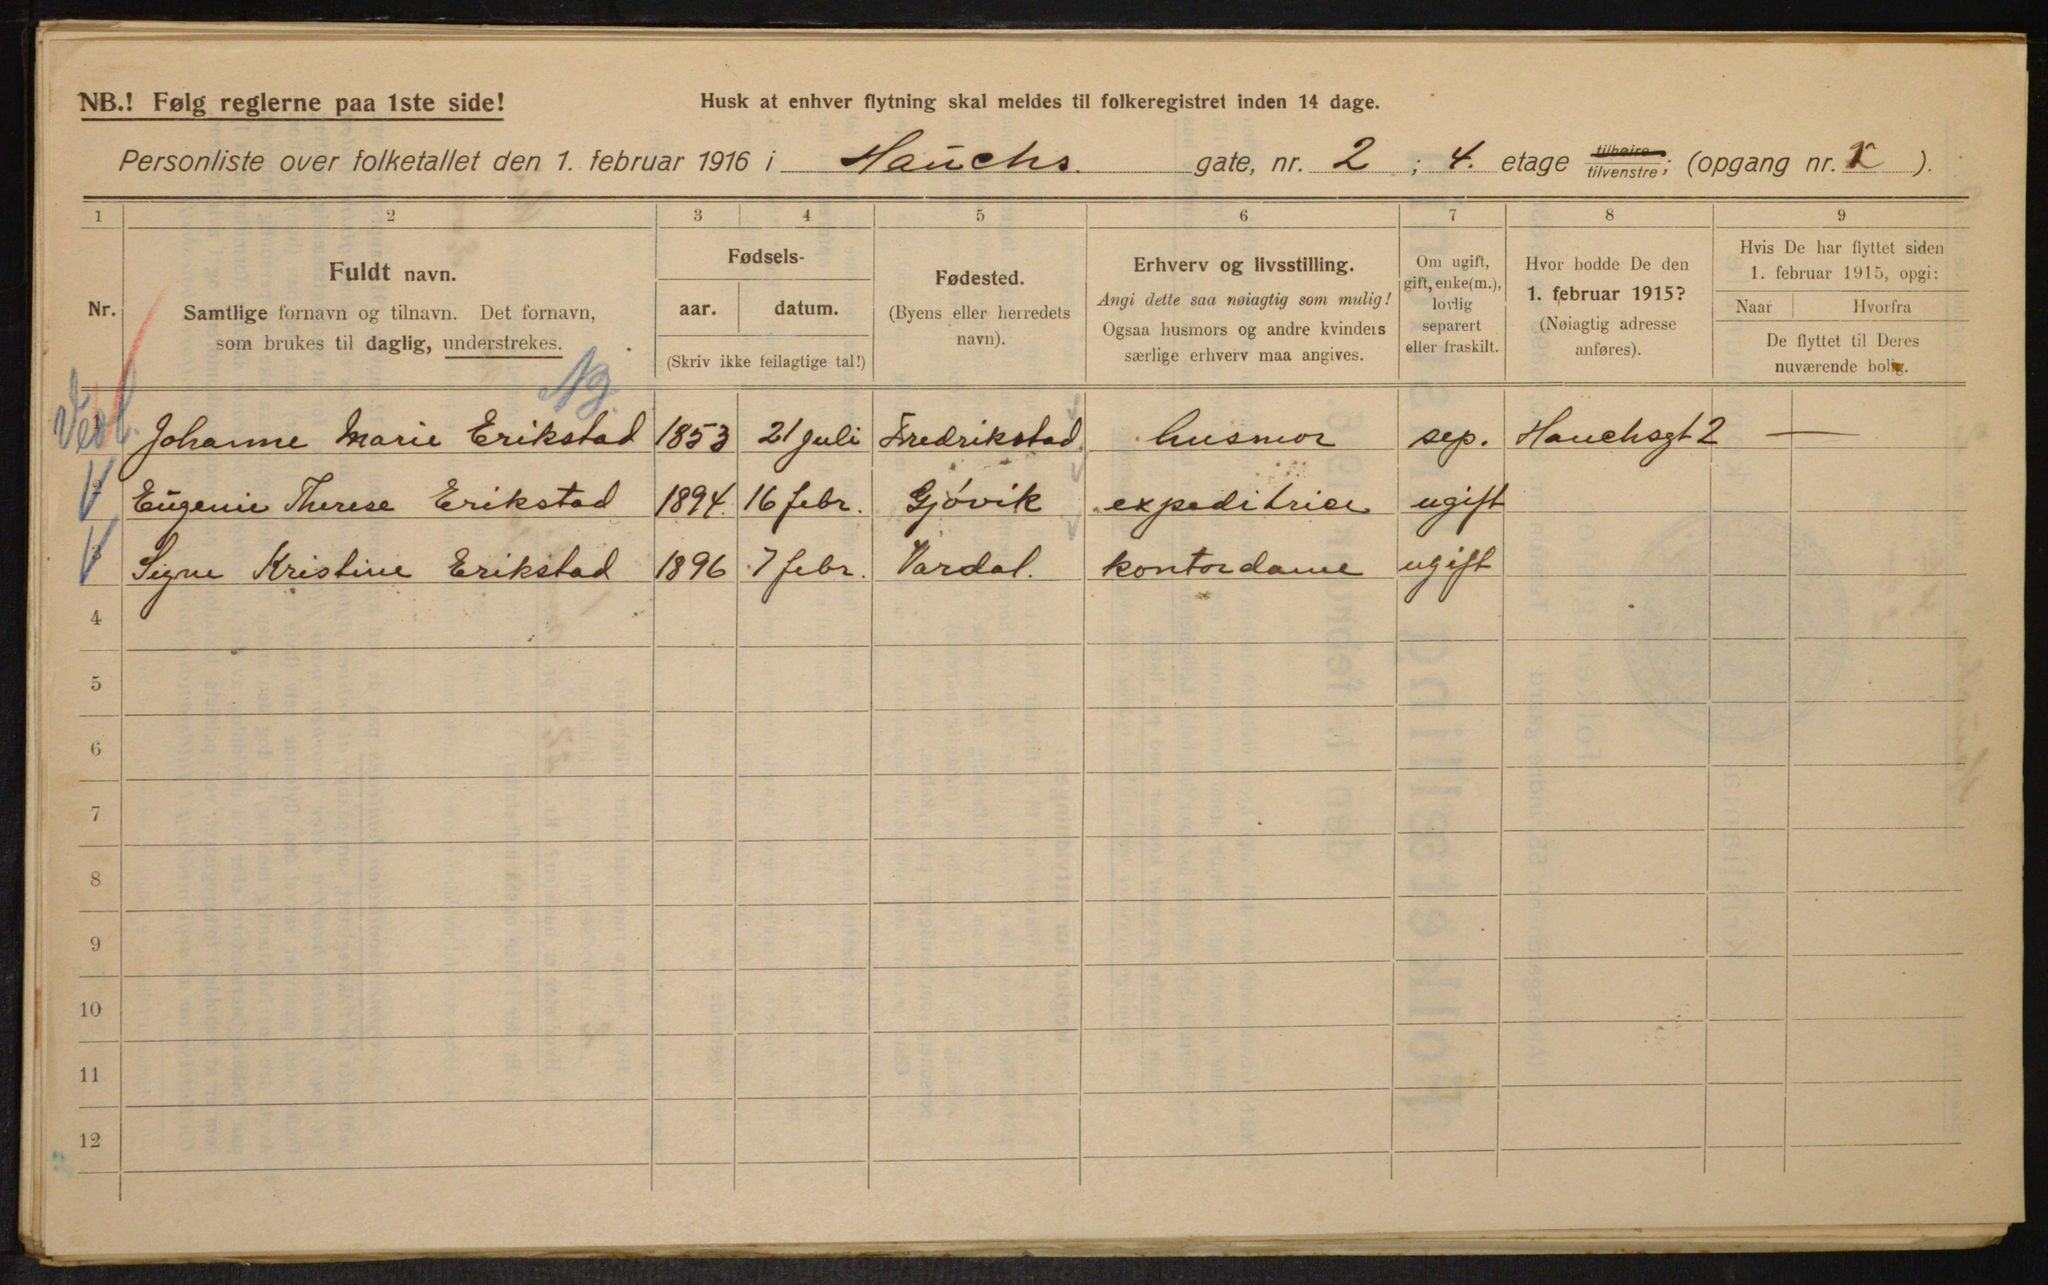 NB.! Følg reglerne paa 1ste side!
Husk at enhver flytning skal meldes til folkeregistret inden 14 dage.
Personliste over folketallet den 1. februar 1916 i Hauchs gate, nr. 2 ; 4. etage tilhøire/tilvenstre; (opgang nr. ).
1 2 3 4 5 6 7 8 9
Nr.
Fuldt navn.
Samtlige fornavn og tilnavn. Det fornavn,
som brukes til daglig, understrekes.
Fødsels-
aar. datum.
(Skriv ikke feilagtige tal!)
Fødested.
(Byens eller herredets
navn).
Erhverv og livsstilling.
Angi dette saa nøiagtig som mulig!
Ogsaa husmors og andre kvinders
særlige erhverv maa angives.
Om ugift,
gift, enke(m.),
lovlig
separert
eller fraskilt.
Hvor bodde De den
1. februar 1915?
(Nøiagtig adresse
anføres).
Hvis De har flyttet siden
1. februar 1915, opgi:
Naar Hvorfra
De flyttet til Deres
nuværende bolig.
Johanne Marie Erikstad 1853 21 juli Fredrikstad husmor sep. Hauchsgt 2 —
Eugenie Therese Erikstad 1894. 16 febr. Gjøvik expeditrice ugift
Signe Kristine Erikstad 1896 7 febr. Vardal. kontordame ugift
4
5
6
7
8
9
10
11
12